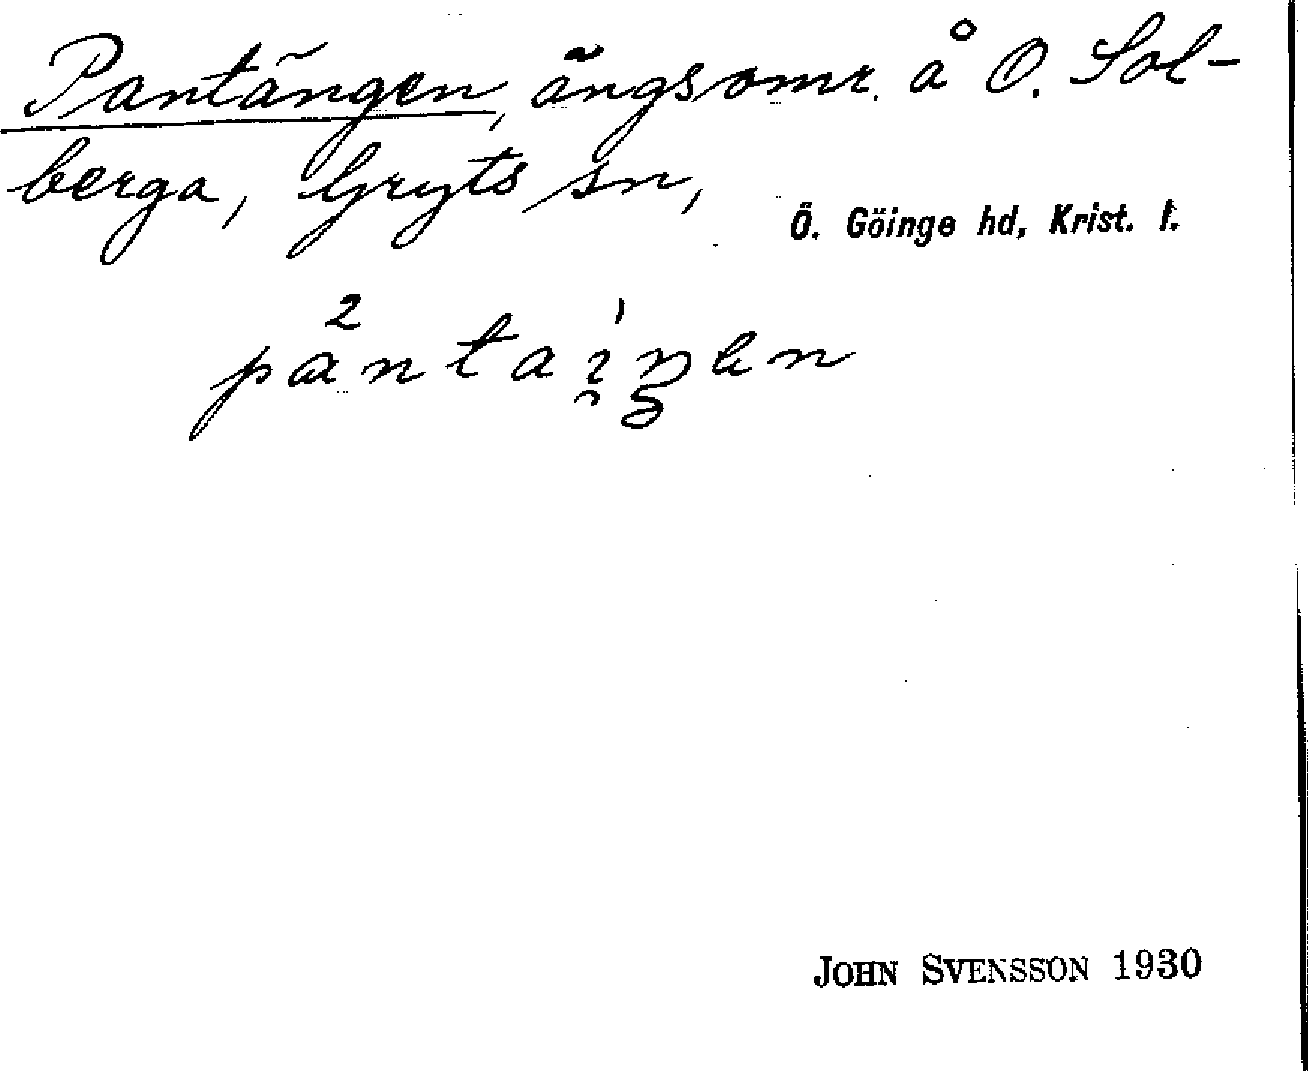 Pantängen, ängsomr. å O. Sol-
berga, Gryts sn,
Ö. Göinge hd, Krist. l.
JOHN SVENSSON 1930